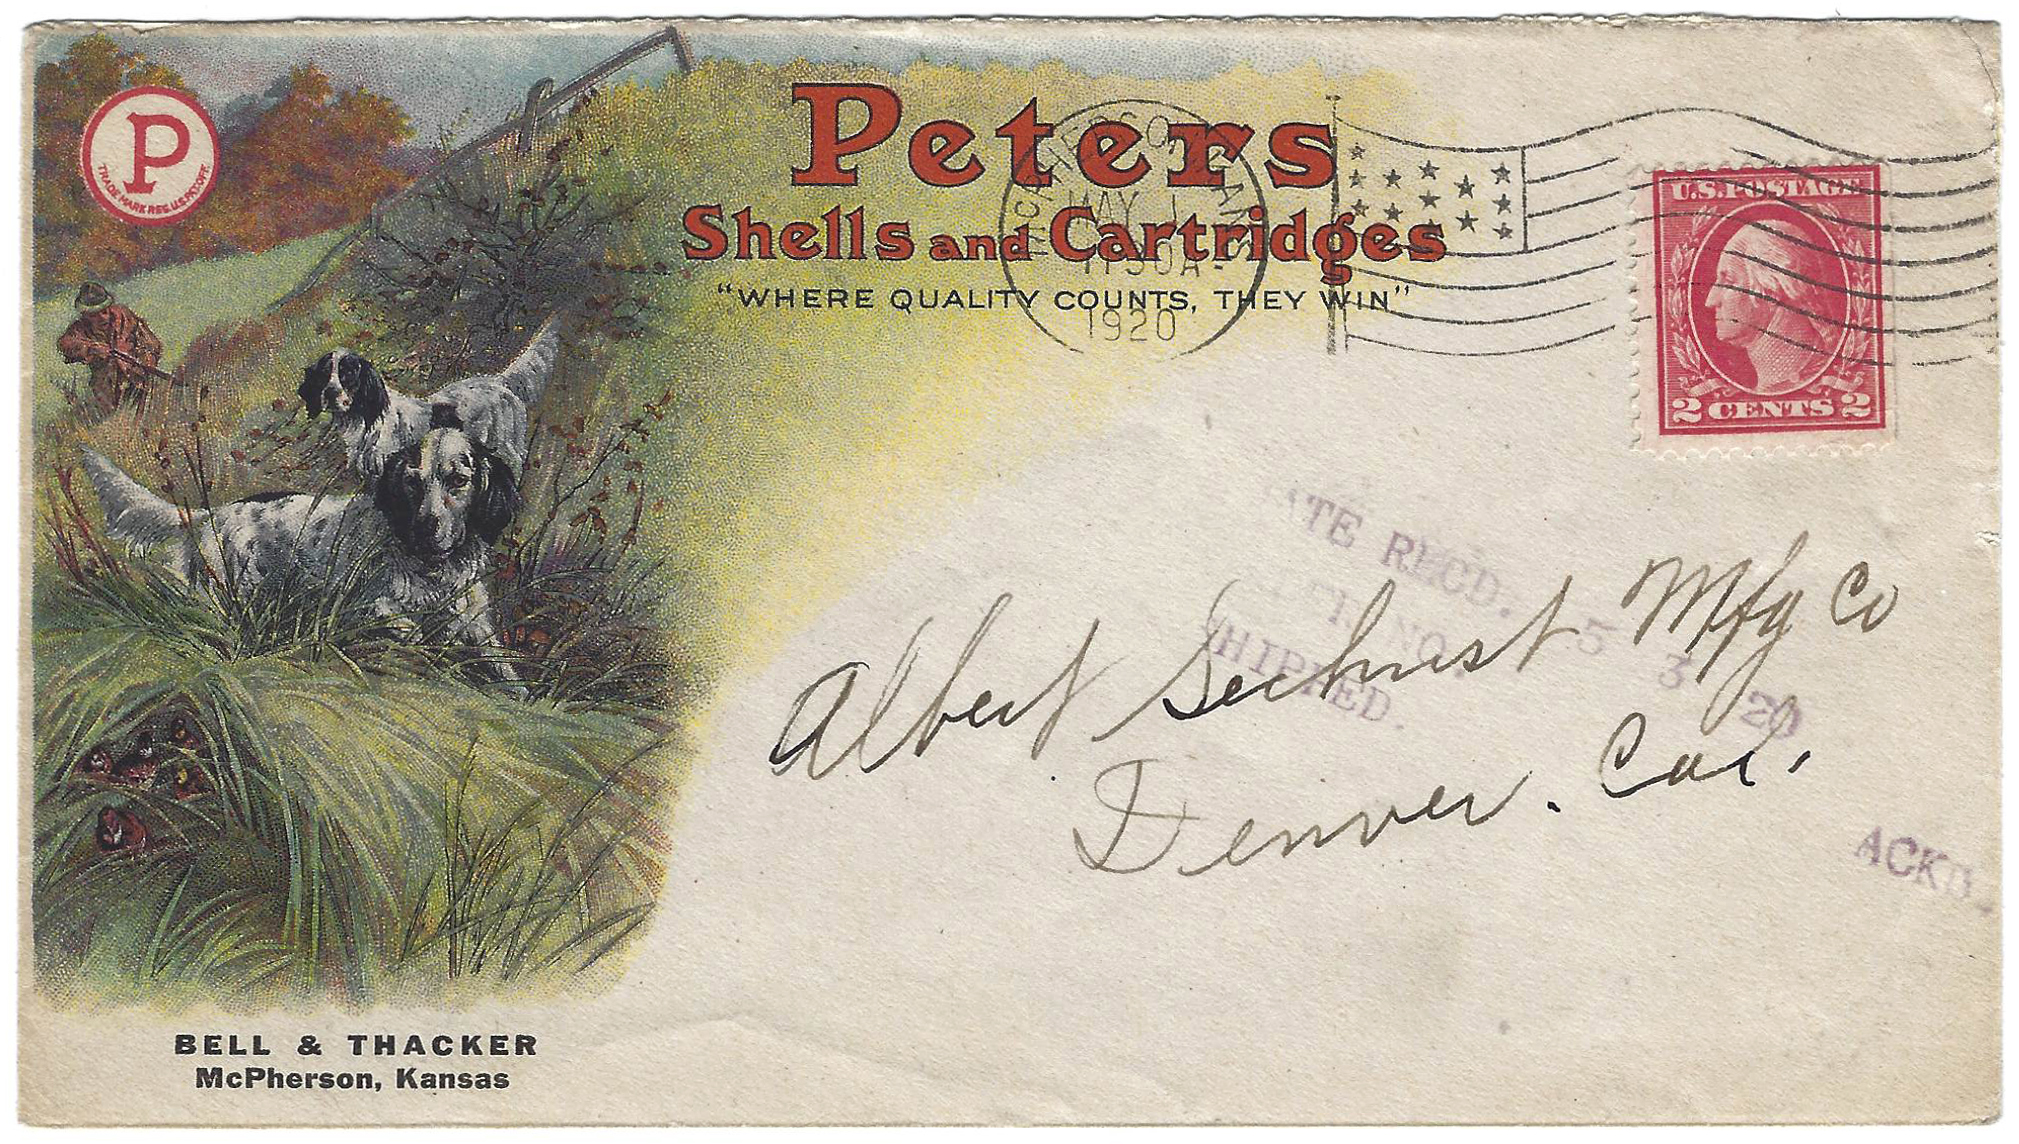 P
TRADE MARK REG. U.S. PAT. OFF.
Peters
Shells and Cartridges
"WHERE QUALITY COUNTS, THEY WIN"
MCPHERSON, KANS.
MAY 1
1130A
1920
U.S. POSTAGE
2 CENTS 2
ATE RECD. 5 3 20
NO.
SHIPPED.
ACKD.
Albert Sechrist Mfg Co
Denver. Col.
BELL & THACKER
McPherson, Kansas